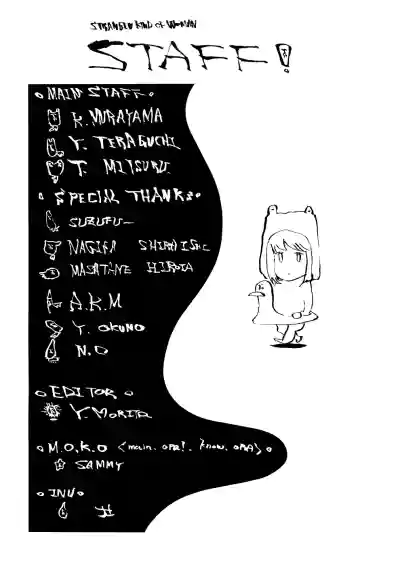 STRANGER KIND of WOMAN
STAFF!
MAIN STAFF
K. MURAYAMA
Y. TERAGUCHI
T. MITSURU
SPECIAL THANKS
SUZUFU—
NAGISA SHIRAISHI
MASATANE HIROTA
A.K.M
Y. OKUNO
N.O
EDITOR
Y. MORITA
M.O.K.O <main. OPA!. know. OPA>
SAMMY
INU